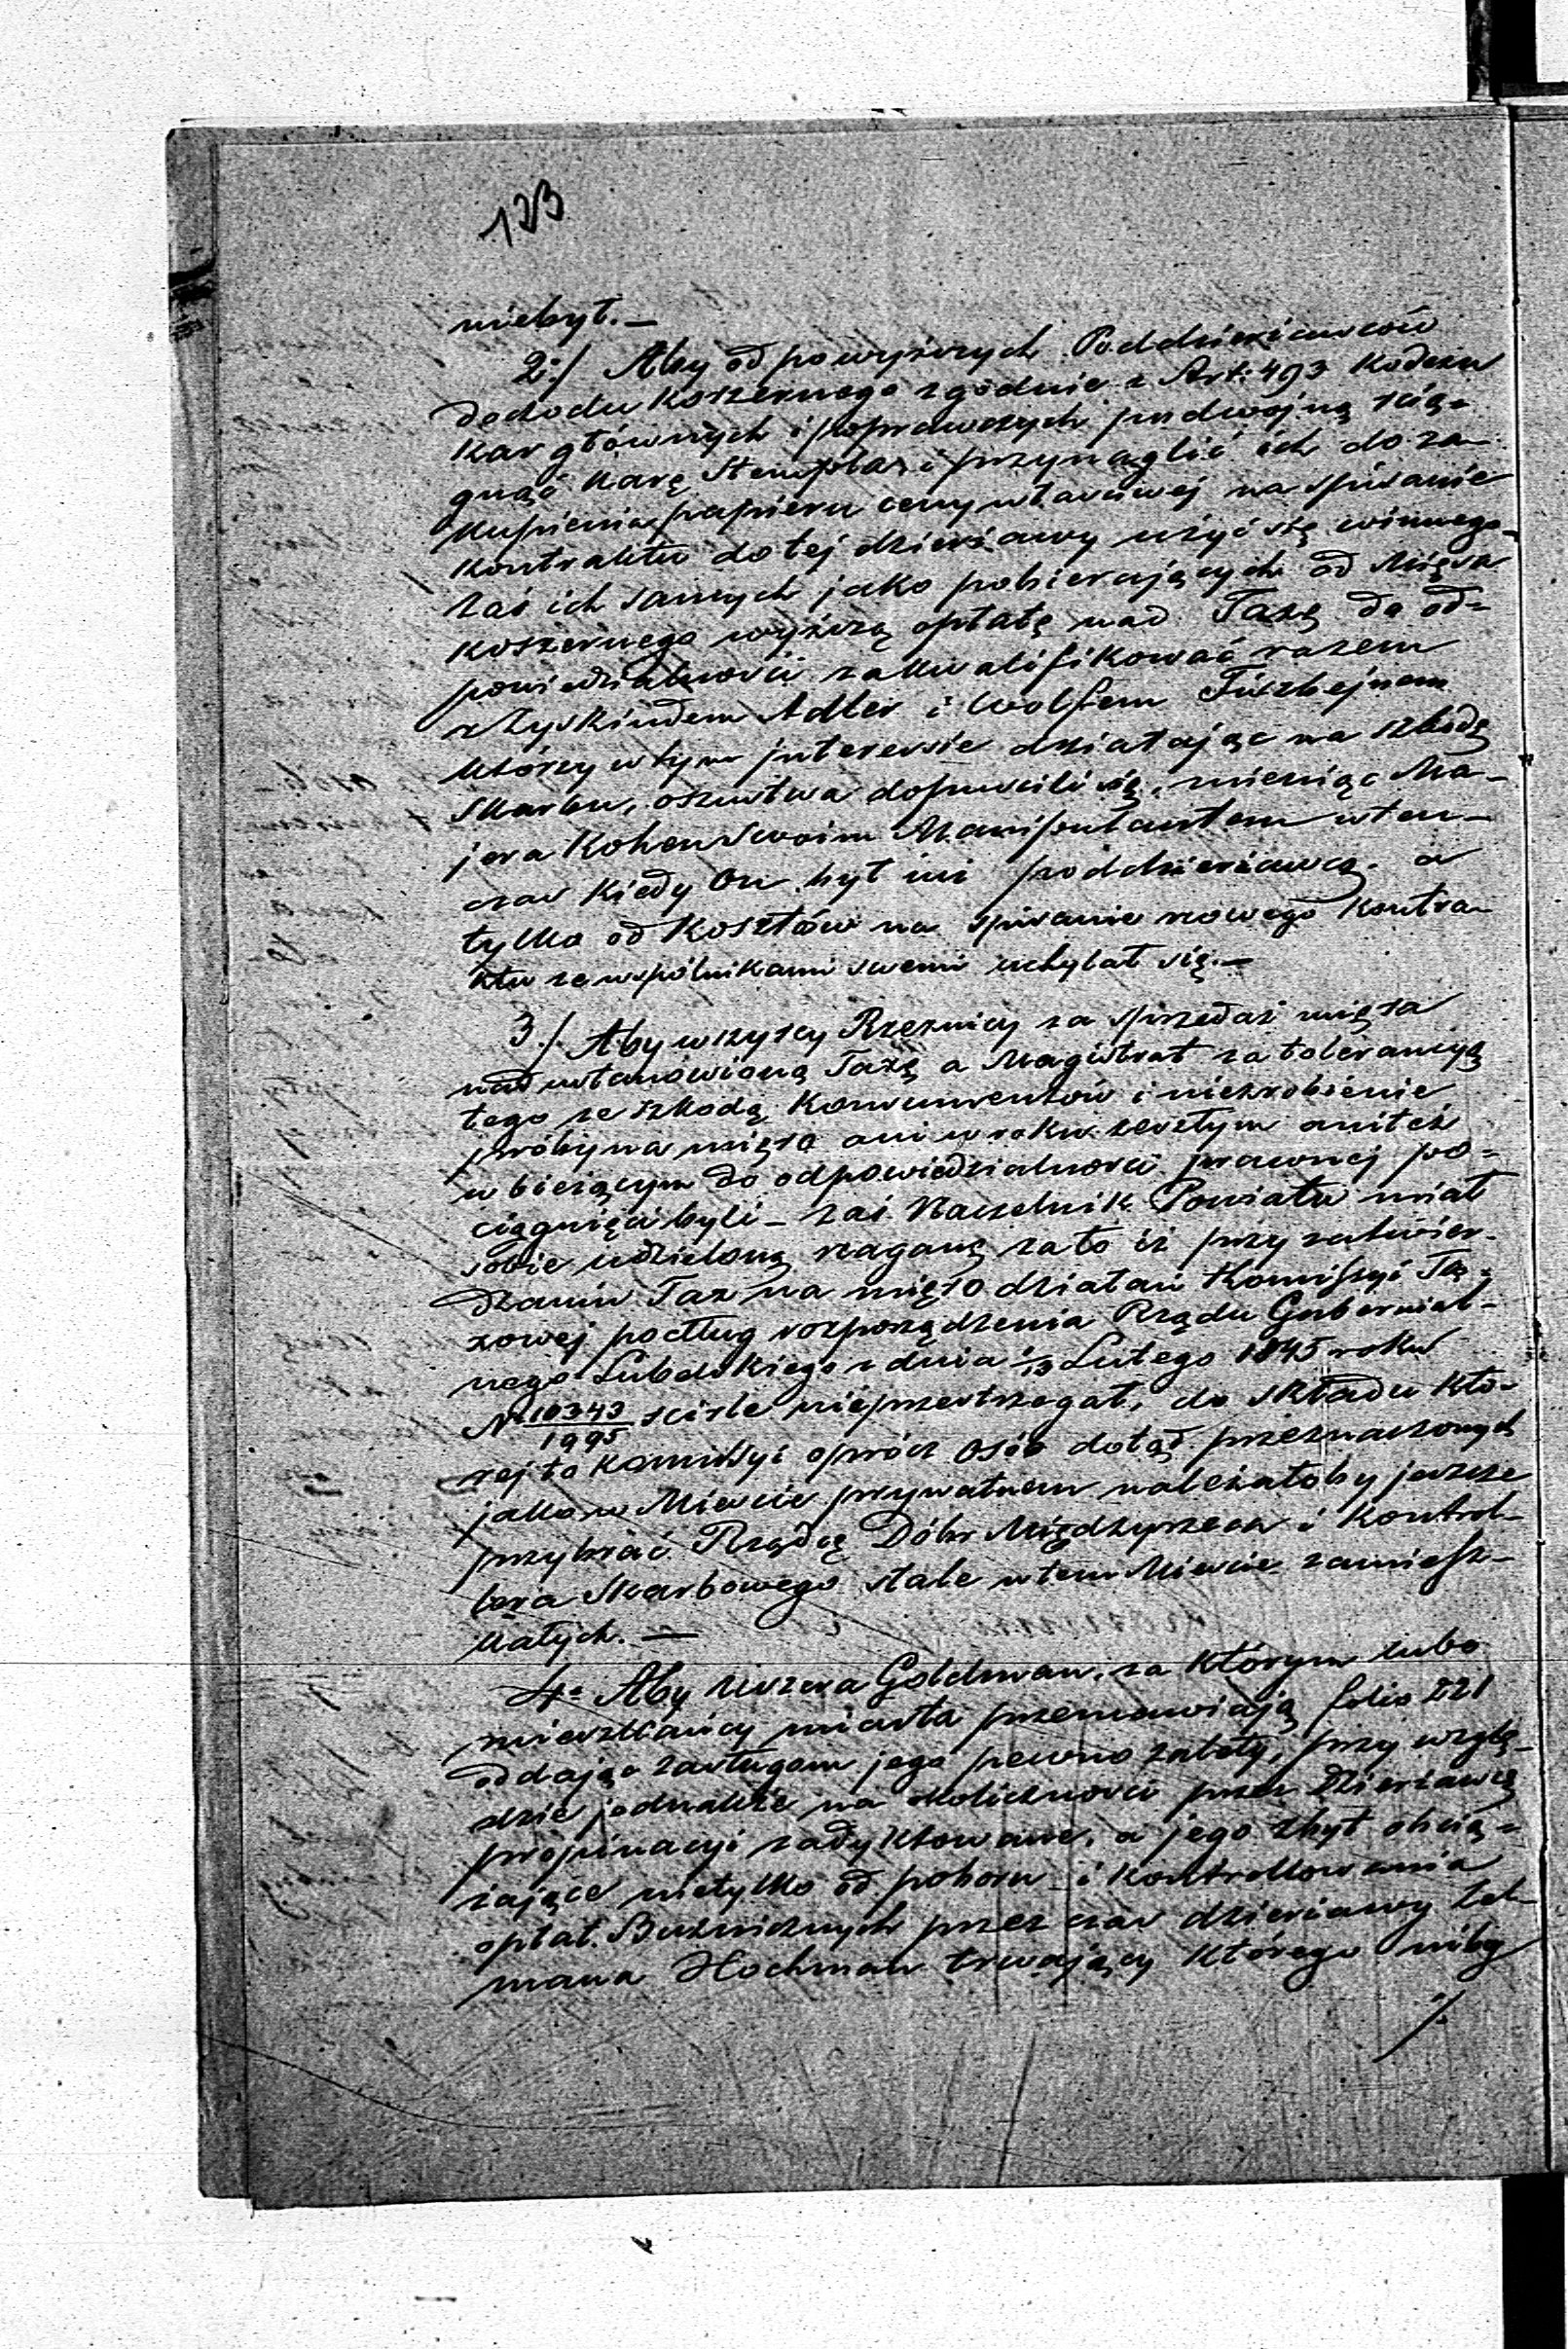 133
niebył.—
2:/ Aby od powyższych Poddzierżawców
dochodu koszernego zgodnie z Art: 493 Kodexu
kar głównych i poprawczych podwójną ścią=
gnąć karę Stempla, i przynaglić ich do za-
kupienia papieru ceny właściwej na spisanie
kontraktu do tej dzierżawy użyć się winnego
zaś ich samych jako pobierających od Mięsa
koszernego wyższą opłatę nad Taxę do od=
powiedzialności zakwalifikować razem
z Zyskindem Adler i Wolfem Fiszbejnem
którzy w tym interessie działając na szkodę
Skarbu, oszustwa dopuścili się, mieniąc Ma-
jera Kohen Swoim Manipulantem wten-
czas kiedy On był ini poddzierżawcą, a
tylko od kosztów na spisanie nowego kontra-
ktu ze wspólnikami swemi uchylał się.—
3./ Aby wszyscy Rzeźnicy za sprzedaż mięsa
nad ustanowioną Taxę a Magistrat za tolerancyą
tego ze szkodą Konsumentów i niezrobienie
próby na mięso ani w roku zeszłym ani też
w bieżącym do odpowiedzialności prawnej po=
ciągnięci byli – zaś Naczelnik Powiatu miał
sobie udzieloną naganę za to iż przy zatwier-
dzaniu Tax na mięso działań Kommissyi Ta=
xowej podług rozporządzenia Rządu Gubernial-
nego Lubelskiego z dnia 1/13 Lutego 1845 roku
N 10343/1995 ściśle nieprzestrzegał, do składu któ-
rej to Kommissyi oprócz osób dotąd przeznaczonych
jako w Mieście prywatnem należałoby jeszcze
przybrać Rządcę Dóbr Międzyrzecza i Kontrol-
lera Skarbowego stale w tem Mieście zamiesz-
kałych. —
4o Aby Uszera Goldman, za którym lubo
mieszkańcy miasta przemawiają folio 221
oddając zasługom jego pewno zalety, przy wzglę-
dzie jednakże na okoliczności przez Dzierżawcę
propinacyi zadyktowane, a jego zbyt obcią=
żające nietylko od poboru i kontrollowania
opłat Bużniczych przez czas dzierżawy Zel-
mana Hochman trwający którego niby
./.